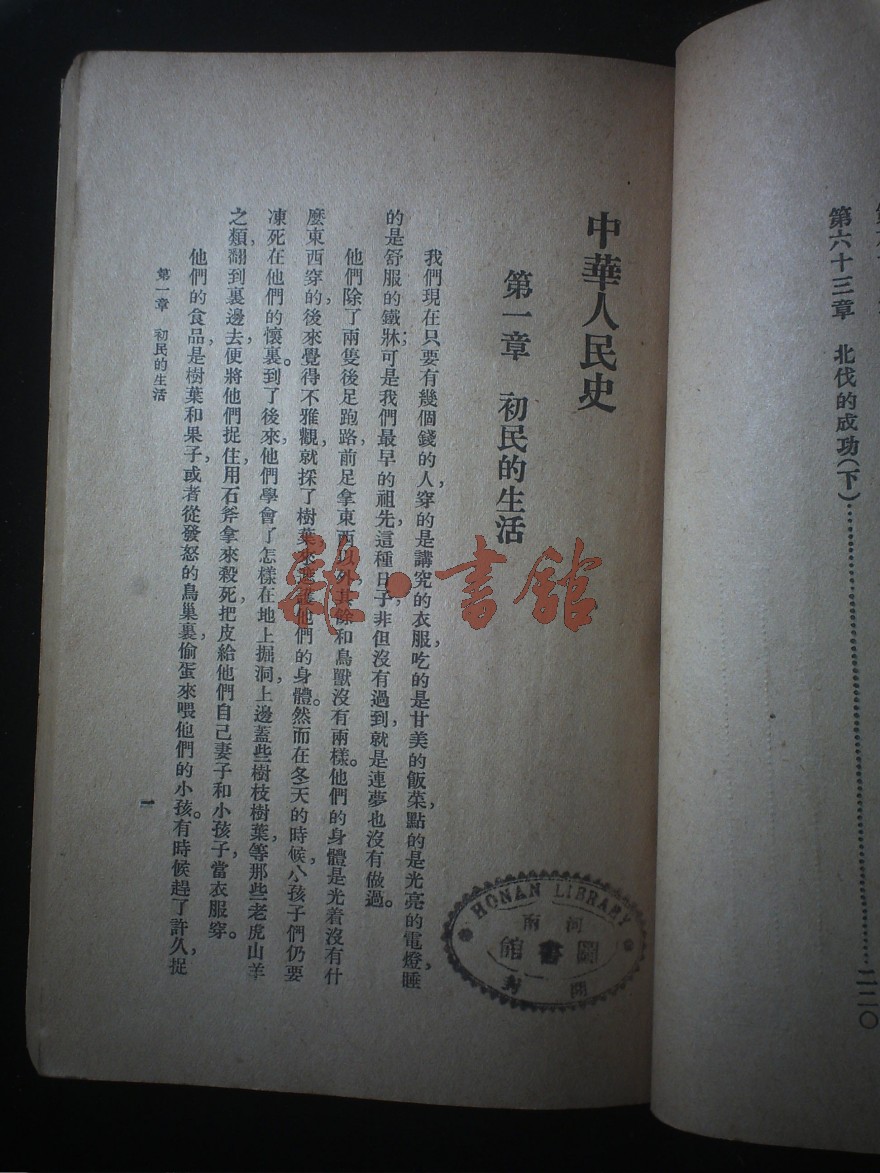 第六十三章　北伐的成功(下)……………………二二〇
中華人民史
第一章　初民的生活
我們現在只要有幾個錢的人，穿的是講究的衣服，吃的是甘美的飯菜，點的是光亮的電燈，睡
的是舒服的鐵牀；可是我們最早的祖先，這種日子，非但沒有過到，就是連夢也沒有做過。
他們除了兩隻後足跑路，前足拿東西以外，其餘和鳥獸沒有兩樣。他們的身體是光着，沒有什
麼東西穿的，後來覺得不雅觀，就採了樹葉來遮護他們的身體。然而在冬天的時候，小孩子們仍要
凍死在他們的懷裏。到了後來，他們學會了怎樣在地上掘洞，上邊蓋些樹枝樹葉，等那些老虎山羊
之類，翻到裏邊去，便將他們捉住，用石斧拿來殺死，把皮給他們自己妻子和小孩子，當衣服穿。
他們的食品，是樹葉和果子，或者從發怒的鳥巢裏，偷蛋來喂他們的小孩。有時候趕了許久，捉
第一章　初民的生活
一
雜·書館
HONAN LIBRARY
河南
圖書館
開封